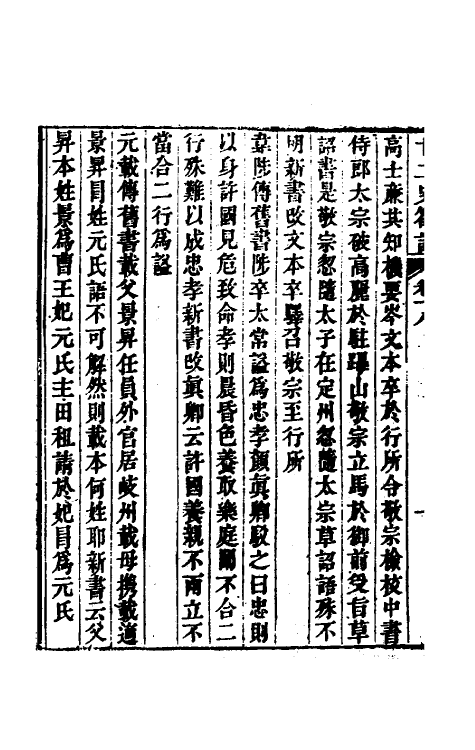 高士廉共知機要岑文本卒於行所令敬宗檢校中書
侍郎太宗破高麗於駐蹕山敬宗立馬於御前受旨草
詔書是敬宗忽隨太子在定州忽隨太宗草詔語殊不
明新書改文本卒驛召敬宗至行所
韋陟傳舊書陟卒太常謚為忠孝顏真卿駁之曰忠則
以身許國見危致命孝則晨昏色養取樂庭闈不合二
行殊難以成忠孝新書改真卿云許國養親不兩立不
當合二行為謚
元載傳舊書載父景昇任員外官居岐州載母攜載適
景昇冒姓元氏語不可解然則載本何姓耶新書云父
昇本姓景為曹王妃元氏主田租請於妃冒為元氏